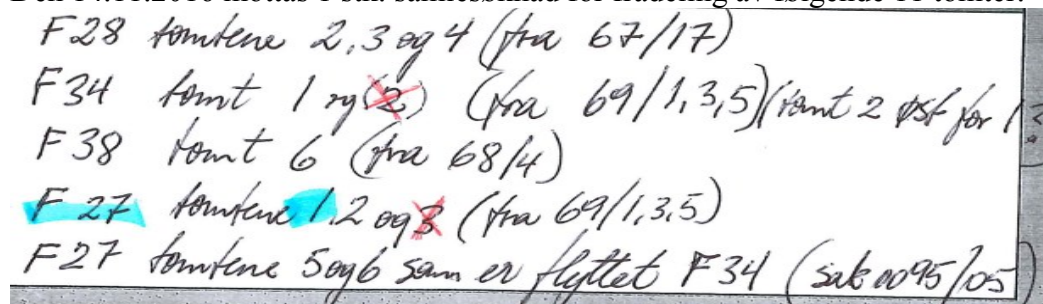 F28 tomtene 2,3 og 4 (fra 67/17)
F34 tomt 1 og (2) (fra 69/1,3,5) (tomt 2 øst for 1?
F38 tomt 6 (fra 68/4)
F27 tomtene 1,2 og 3 (fra 69/1,3,5)
F27 tomtene 5 og 6 som er flyttet F34 (sak 0095/05)